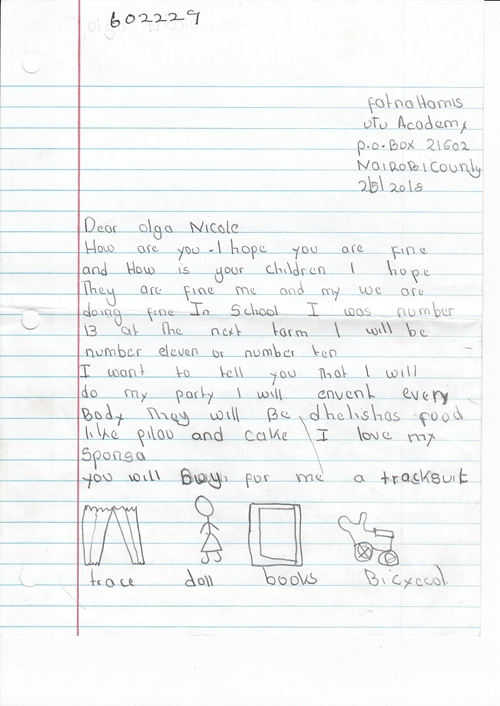 602229
fatna Harris
utu Academy
p.o.Box 21602
NAIROBI County
2/5/2018
Dear olga Nicole
How are you - I hope you are fine
and How is your children I hope
They are fine me and my we are
doing fine In School I was number
13 at the next tarm I will be
number eleven or number ten
I want to tell you that I will
do my party I will envent every
Body They will Be dhelishas food
like pilau and cake I love my
Sponsa
you will Buy for me a tracksuit
trace doll books Bicyccol